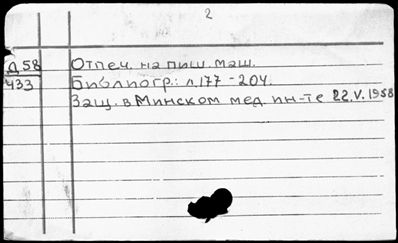 2
Д58 Отпеч. на пиш. маш.
433 Библиогр.: л. 177-204.
Защ. в Минском мед. ин-те 22.V.1958